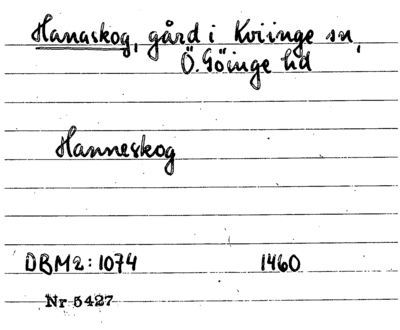 Hanaskog, gård i Kviinge sn,
Ö. Göinge hd
Hanneskog
DBM2:1074 1460
Nr 5427